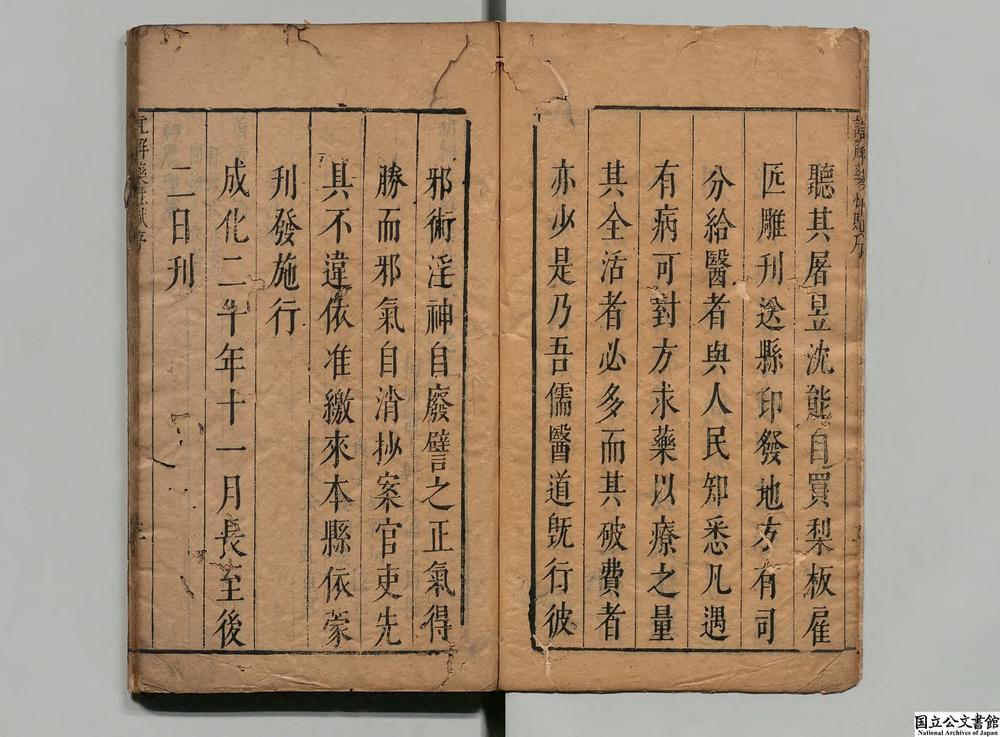 聽其屠昱沈熊自買梨板雇
匠雕刊送縣印發地方有司
分給醫者與人民知悉凡遇
有病可對方求藥以療之量
其全活者必多而其破費者
亦少是乃吾儒醫道旣行彼
邪術淫神自廢譬之正氣得
勝而邪氣自消抄案官吏先
具不違依准繳來本縣依蒙
刊發施行
成化二十年十一月長至後
二日刊
国立公文書館
National Archives of Japan